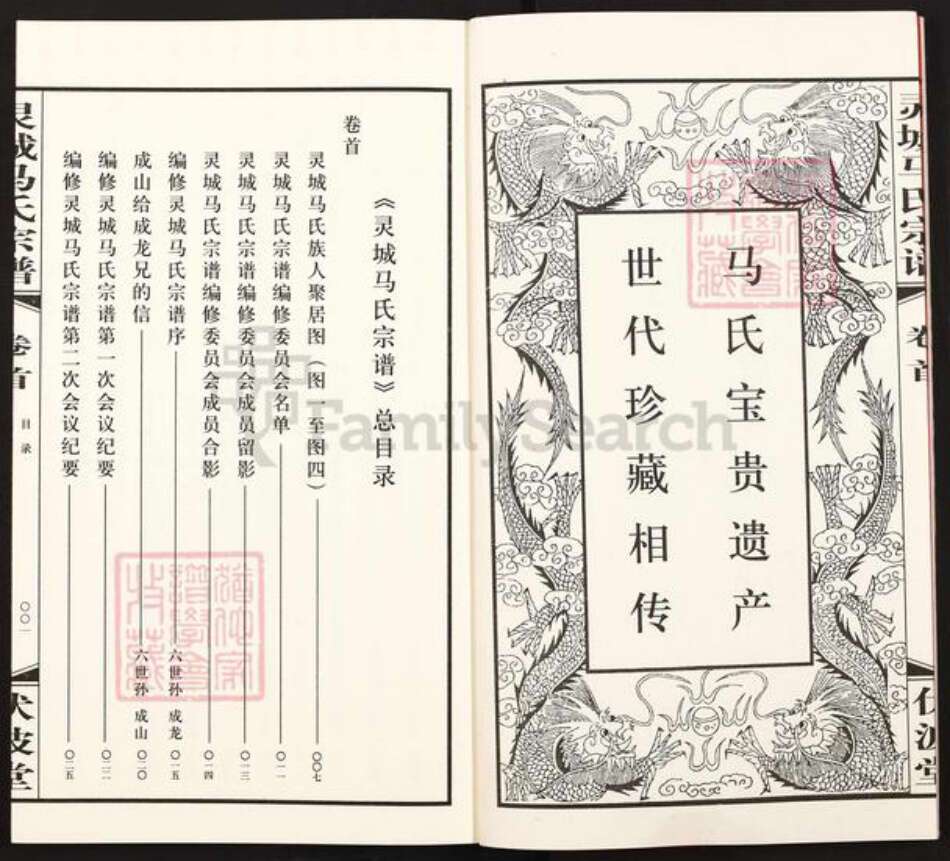 灵城马氏宗谱
卷首
伏波堂
马氏宝贵遗产
世代珍藏相传
《灵城马氏宗谱》总目录
卷首
灵城马氏族人聚居图（图一至图四） 〇〇七
灵城马氏宗谱编修委员会名单 〇一一
灵城马氏宗谱编修委员会成员留影 〇一三
灵城马氏宗谱编修委员会成员合影 〇一四
编修灵城马氏宗谱序 六世孙 成龙 〇一五
成山给成龙兄的信 六世孙 成山 〇二〇
编修灵城马氏宗谱第一次会议纪要 〇二二
编修灵城马氏宗谱第二次会议纪要 〇二五
灵城马氏宗谱
卷首
目录
〇〇一
伏波堂
FamilySearch